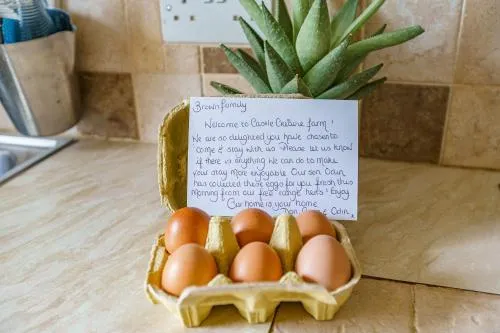 Brown family
Welcome to Castle Creture farm!
We are so delighted you have chosen to
come & stay with us. Please let us know
if there is anything we can do to make
your stay more enjoyable. Our son Odin
has collected these eggs for you fresh this
morning from our free range hens! Enjoy
Our home is your home
& Odin